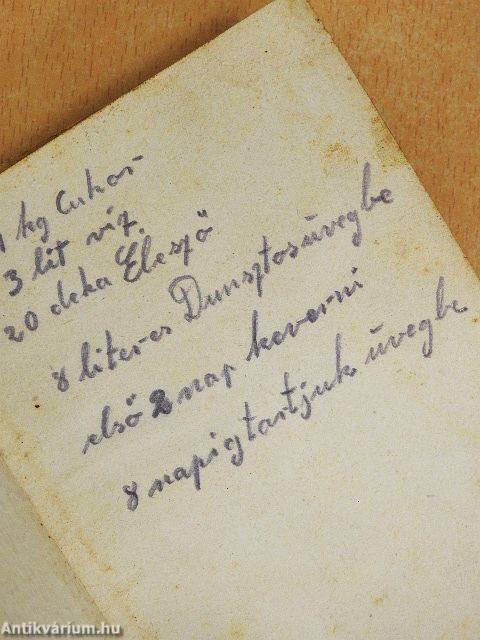 1 kg Cukor
3 lit víz
20 deka Élesző
8 literes Dunsztosüvegbe
első 2 nap keverni
8 napig tartjuk üvegbe
Antikvárium.hu